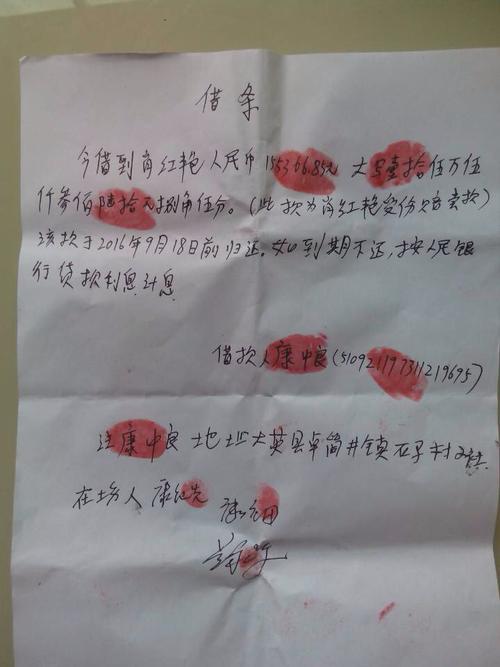 借条
今借到肖红艳人民币155366.85元 大写壹拾伍万伍
仟叁佰陆拾 元捌角伍分。(此款为肖红艳 卖款)
该款于2016年9月18日前归还。如到期不还,按人民银
行贷款利息计息
借款人康中良(510921197311219695)
注康中良 地址大英县卓筒井镇石子村2社
在场人 康 先
康 田